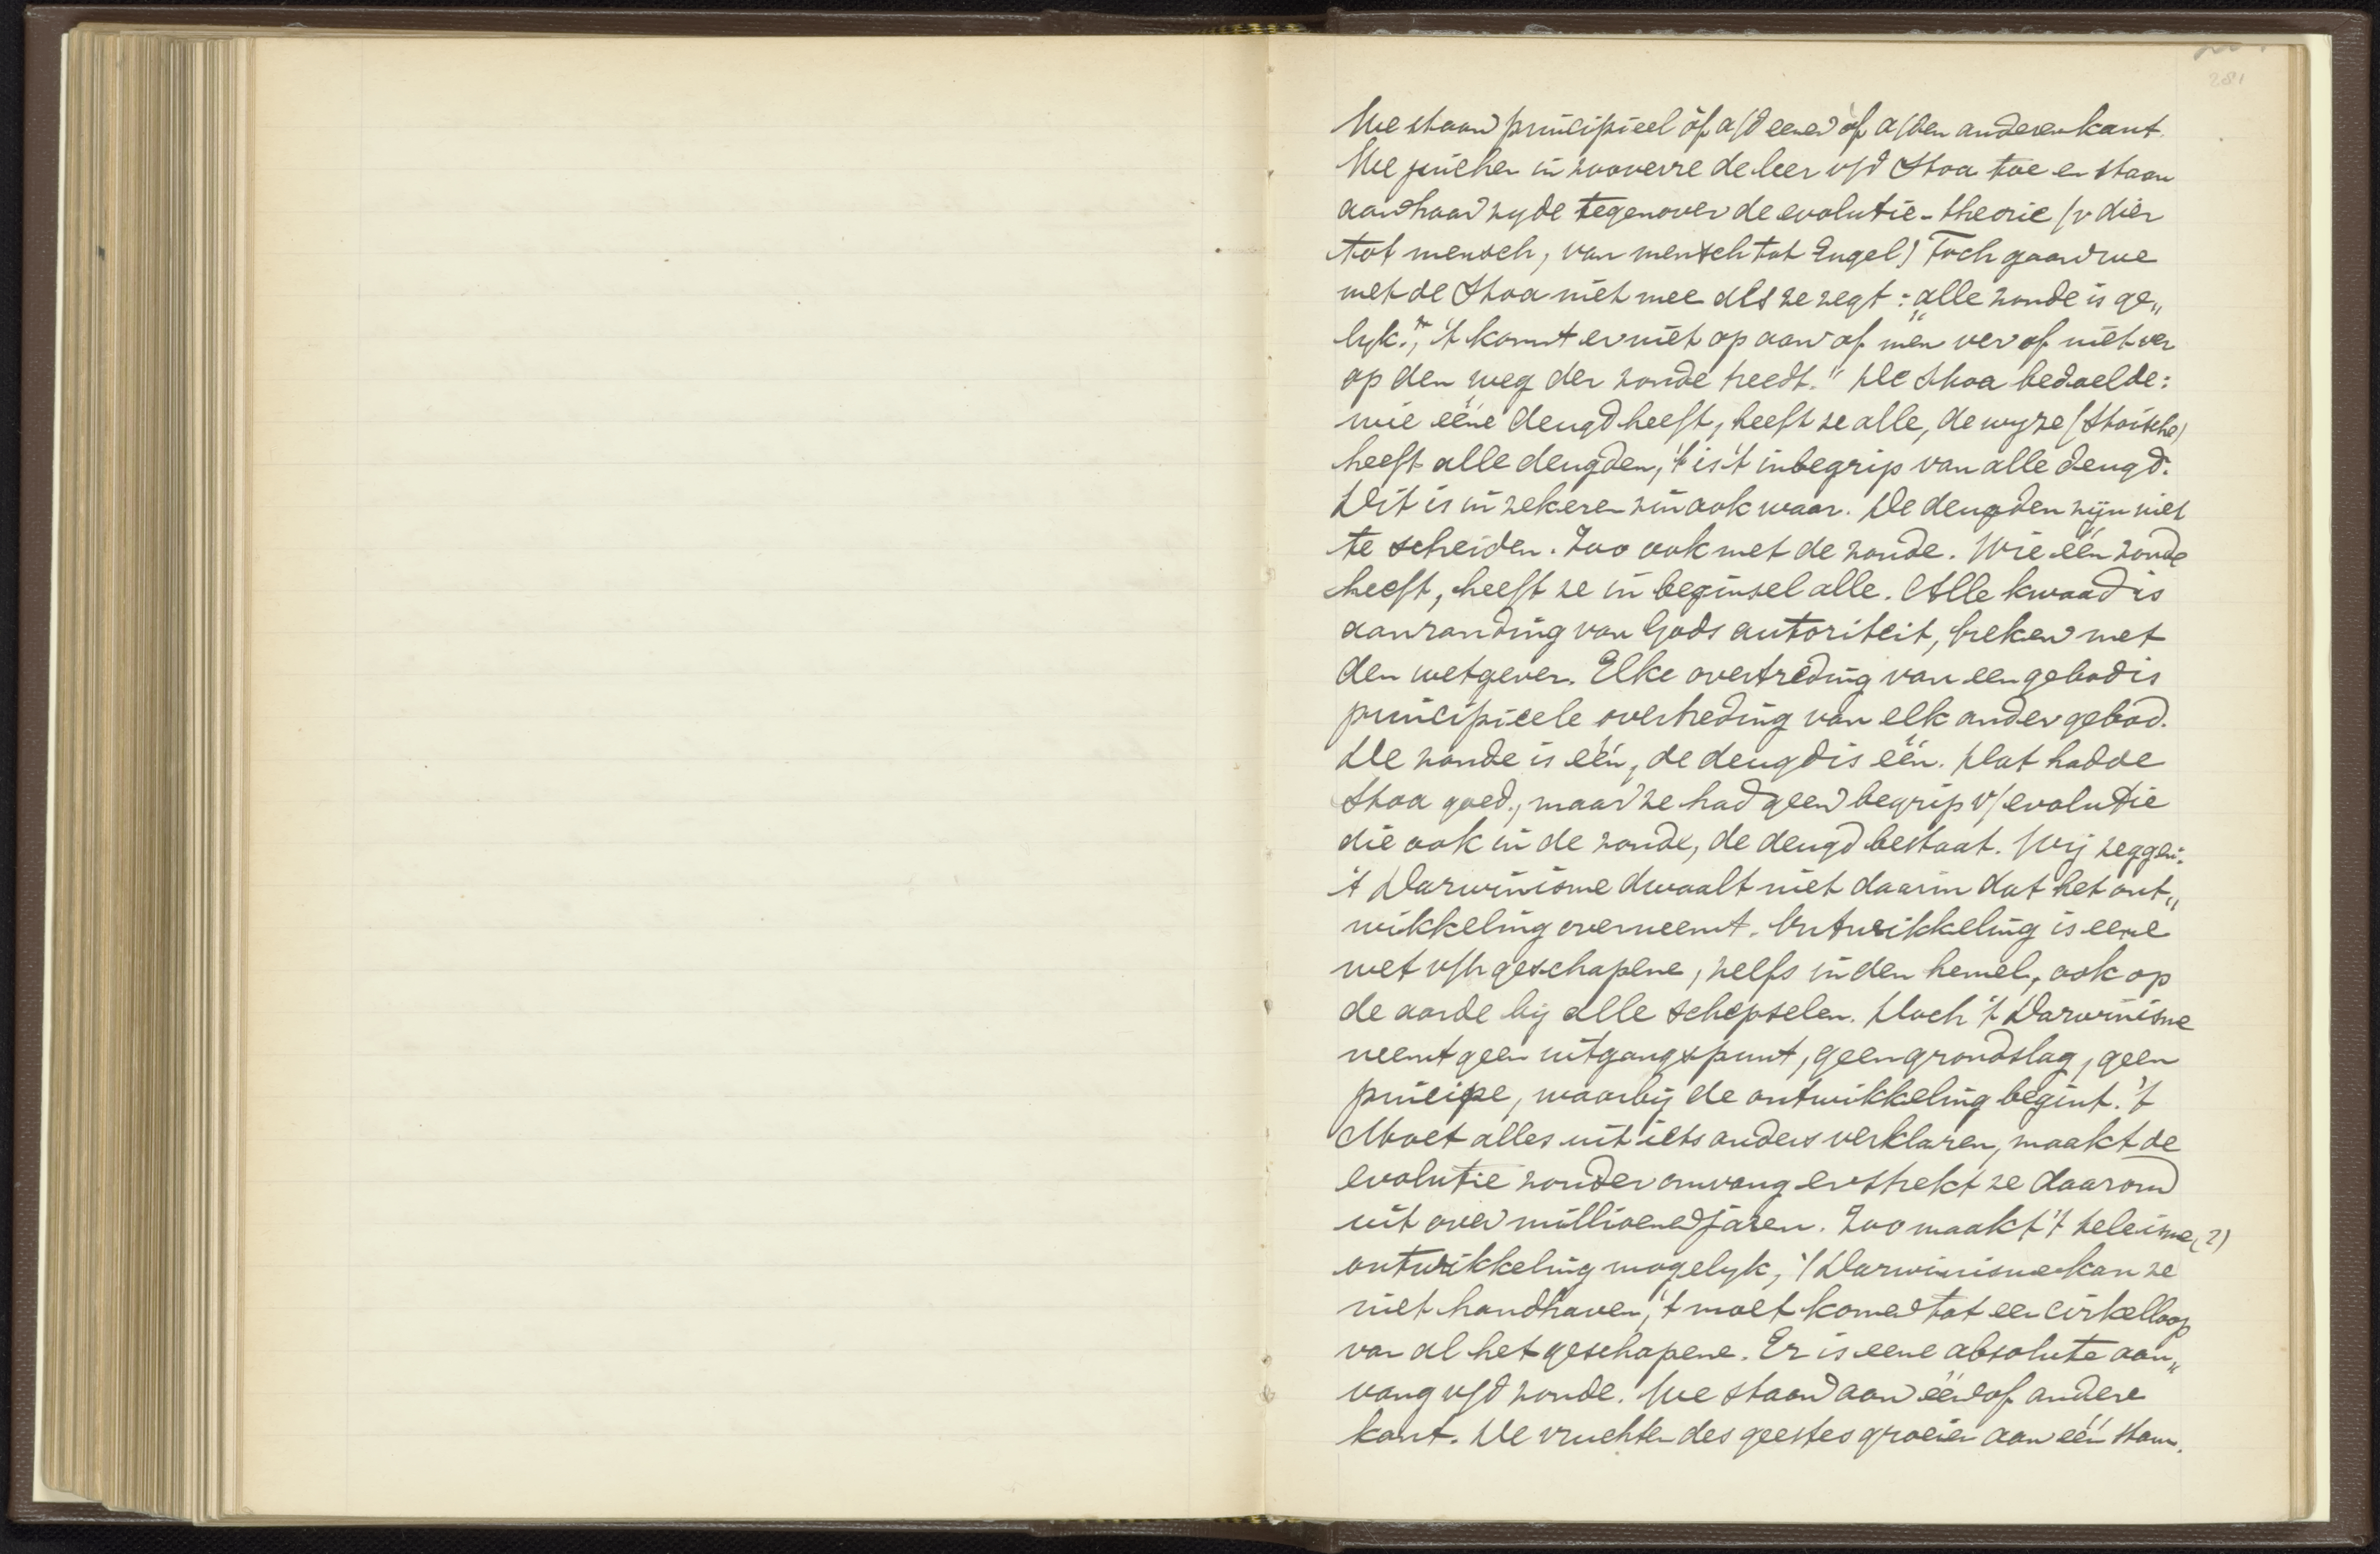 281
We staan principieel òf a/d eenen òf a/den anderen kant.
We juichen in zooverre de leer v/d Stoa toe en staan
aan haar zyde tegenover de evolutie-theorie (v dier
tot mensch, van mensch tot Engel) Toch gaan we
met de Stoa niet mee als ze zegt: "alle zonde is ge„
lyk." „'t komt er niet op aan of men ver of niet ver
op den weg der zonde treedt." De Stoa bedoelde:
wie ééne deugd heeft, heeft ze alle, de wyze (Stoische)
heeft alle deugden, 't is 't inbegrip van alle deugd.
Dit is in zekeren zin ook waar. De deugden zijn niet
te scheiden. Zoo ook met de zonde. Wie één zonde
heeft, heeft ze in beginsel alle. Alle kwaad is
aanranding van Gods autoriteit, breken met
den wetgever. Elke overtreding van een gebod is
principieele overtreding van elk ander gebod.
De zonde is één, de deugd is één. Dat hadde
Stoa goed, maar ze had geen begrip v/ evolutie
die ook in de zonde, de deugd bestaat. Wij zeggen:
't Darwinisme dwaalt niet daarin dat het ont„
wikkeling overneemt. Ontwikkeling is eene
wet v/h geschapene, zelfs in den hemel, ook op
de aarde bij alle schepselen. Doch 't Darwinisme
neemt geen uitgangspunt, geen grondslag, geen
principe, waarbij de ontwikkeling begint. 't
Moet alles uit iets anders verklaren, maakt de
evolutie zonder omvang en strekt ze daarom
uit over millioenen jaren. Zoo maakt 't teleisme (?)
ontwikkeling mogelyk, 't Darwinisme kan ze
niet handhaven, 't moet komen tot een cirkelloop
van al het geschapene. Er is eene absolute aan„
vang v/d zonde. We staan aan één of andere
kant. De vruchten des geestes groeien aan één stam.